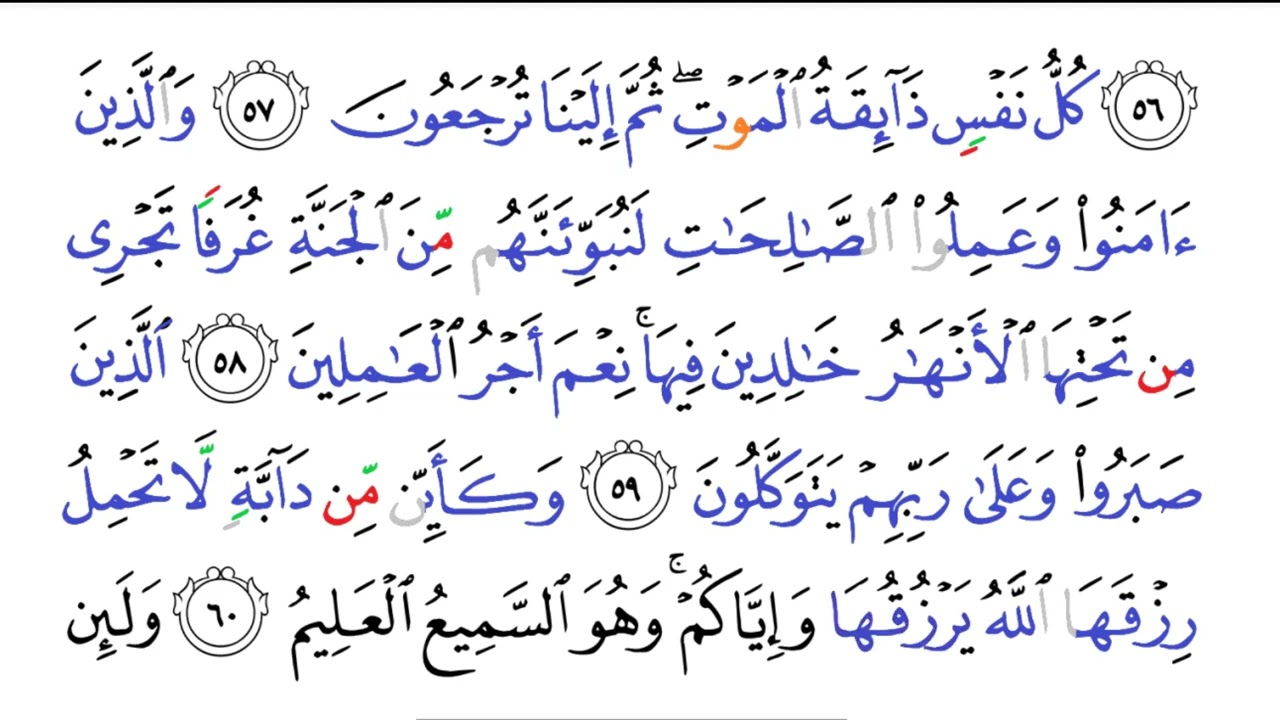 ٥٦ كُلُّ نَفْسٍ ذَآئِقَةُ ٱلْمَوْتِ ۖ ثُمَّ إِلَيْنَا تُرْجَعُونَ ٥٧ وَٱلَّذِينَ
ءَامَنُوا۟ وَعَمِلُوا۟ ٱلصَّـٰلِحَـٰتِ لَنُبَوِّئَنَّهُم مِّنَ ٱلْجَنَّةِ غُرَفًا تَجْرِى
مِن تَحْتِهَا ٱلْأَنْهَـٰرُ خَـٰلِدِينَ فِيهَا ۚ نِعْمَ أَجْرُ ٱلْعَـٰمِلِينَ ٥٨ ٱلَّذِينَ
صَبَرُوا۟ وَعَلَىٰ رَبِّهِمْ يَتَوَكَّلُونَ ٥٩ وَكَأَيِّن مِّن دَآبَّةٍ لَّا تَحْمِلُ
رِزْقَهَا ٱللَّهُ يَرْزُقُهَا وَإِيَّاكُمْ ۚ وَهُوَ ٱلسَّمِيعُ ٱلْعَلِيمُ ٦٠ وَلَئِن